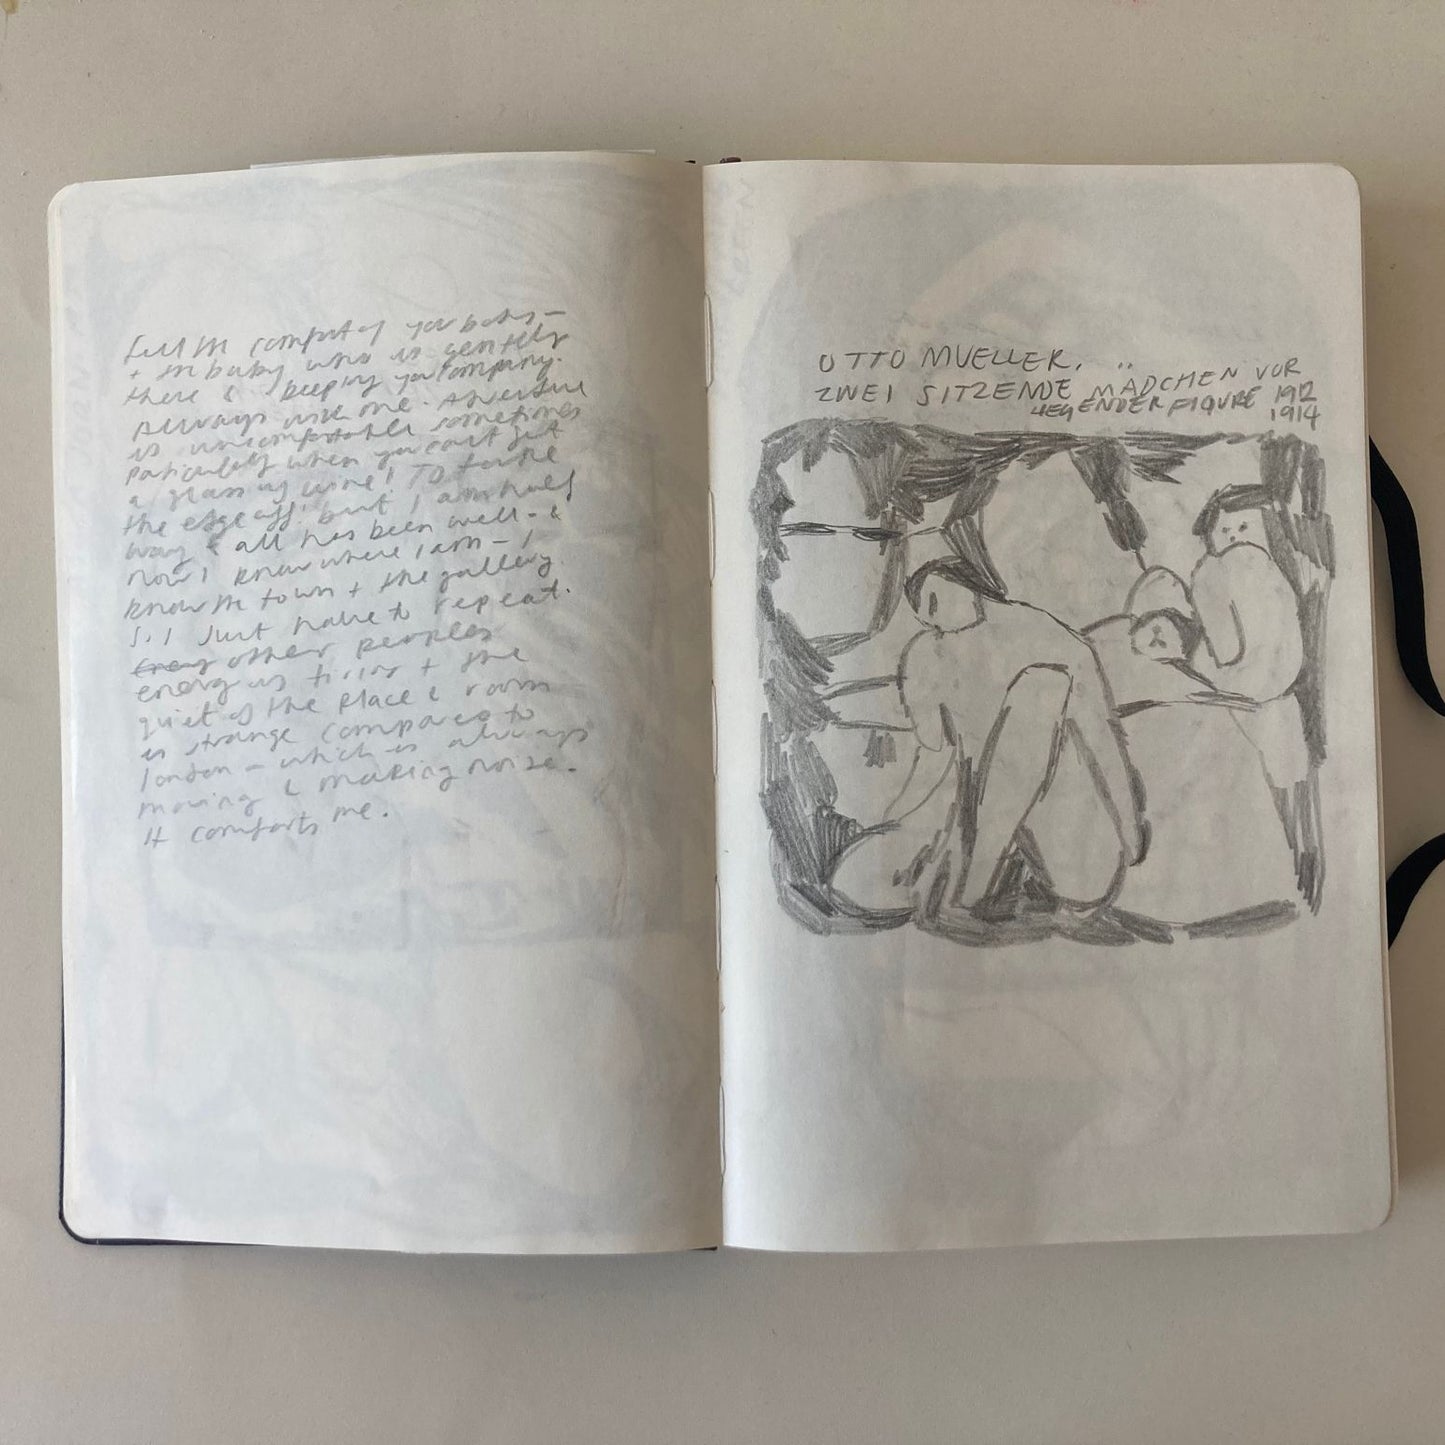 Feel the comfort of your body –
+ the baby who is gently
there & keeping you company.
Always with one. Adventure
is uncomfortable sometimes
particularly when you can't get
a glass of wine! To take
the edge off. but I am half
way & all has been well – &
now I know where I am – I
know the town + the gallery.
So I just have to repeat.
other peoples
energy is tiring + the
quiet of the place & room
is strange compared to
london – which is always
moving & making noise.
It comforts me.
OTTO MUELLER,
ZWEI SITZENDE MÄDCHEN VOR
LIEGENDER FIGURE 1912
1914